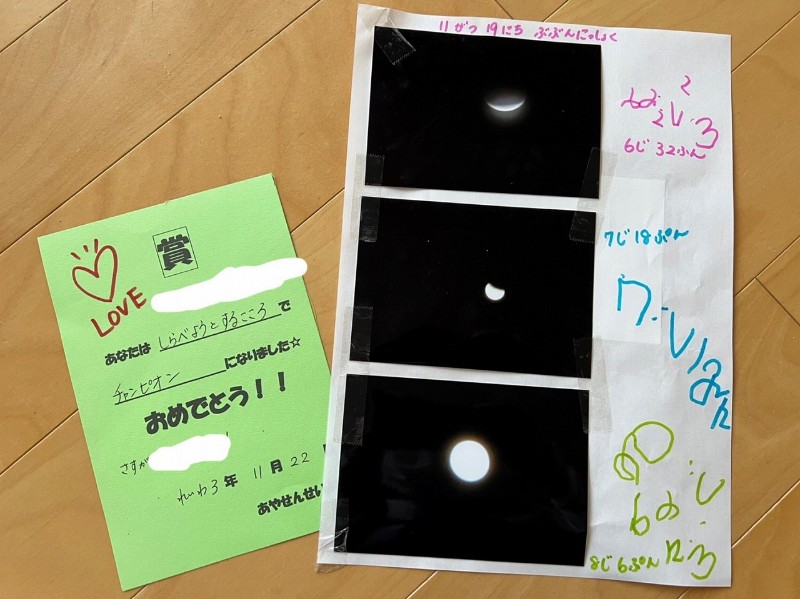 賞
LOVE
あなたは しらべようとするこころ で
チャンピオン になりました☆
おめでとう！！
さすが ！
れいわ3年 11月22
あやせんせい
11がつ 19にち ぶぶんにっしょく
6じ 32ふん
7じ 18ぷん
8じ 6ぷん